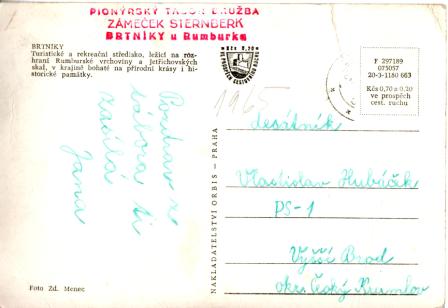 PIONÝRSKÝ TÁBOR DRUŽBA
ZÁMEČEK STERNBERK
BRTNÍKY u Rumburka
BRTNÍKY
Turistické a rekreační středisko, ležící na roz-
hraní Rumburské vrchoviny a Jetřichovských
skal, v krajině bohaté na přírodní krásy i hi-
storické památky.
Kčs 0,20
VE PROSPĚCH CESTOVNÍHO RUCHU
F 297189
075057
20-3-1180 663
Kčs 0,70 + 0,20
ve prospěch
cest. ruchu
1965
Pozdrav z
tábora ti
zasílá
Jana
NAKLADATELSTVÍ ORBIS - PRAHA
desátník
Vlastislav Hubáček
PS-1
Vyšší Brod
okr. Český Krumlov
Foto Zd. Menec